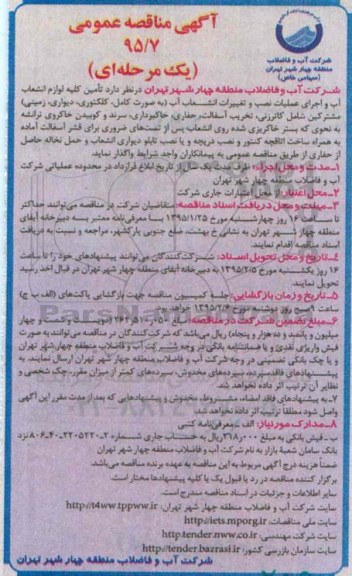 آگهی مناقصه عمومی
۹۵/۷
(یک مرحله‌ای)
شرکت آب و فاضلاب
منطقه چهار شهر تهران
(سهامی خاص)
شرکت آب و فاضلاب منطقه چهار شهر تهران درنظر دارد تأمین کلیه لوازم انشعاب
آب و اجرای عملیات نصب و تغییرات انشعاب آب (به صورت کامل، کلکتوری، دیواری، زمینی)
مشترکین شامل کانرزنی، تخریب آسفالت، حفاری، خاکبرداری، سرند و کوبیدن خاکروی ترانشه
به نحوی که بستر خاکریزی شده روی انشعاب پس از تست‌های ضروری برای قشر آسفالت آماده
به همراه ساخت اتاقچه کنتور و نصب دریچه و یا نصب تابلو دیواری انشعاب و حمل نخاله حاصل
از حفاری از طریق مناقصه عمومی به پیمانکاران واجد شرایط واگذار نماید.
۱-مدت و محل اجراء: ظرف مدت یک سال از تاریخ ابلاغ قرارداد در محدوده عملیاتی شرکت
آب و فاضلاب منطقه چهار شهر تهران
۲-محل اعتبار: از محل اعتبارات جاری شرکت
۳-مهلت و محل دریافت اسناد مناقصه: متقاضیان شرکت در مناقصه می‌توانند حداکثر
تا ساعت ۱۶ روز چهارشنبه مورخ ۱۳۹۵/۱/۲۵ با معرفی‌نامه معتبر به دبیرخانه آبفای
منطقه چهار شهر تهران به نشانی خ بهشت، ضلع جنوبی پارکشهر، مراجعه و نسبت به دریافت
اسناد مناقصه اقدام نمایند.
۴-تاریخ و محل تحویل اسناد: شرکت‌کنندگان می‌توانند پیشنهادهای خود را تا ساعت
۱۶ روز یکشنبه مورخ ۱۳۹۵/۲/۵ به دبیرخانه آبفای منطقه چهار شهر تهران در قبال اخذ رسید
تحویل نمایند.
۵-تاریخ و زمان بازگشایی: جلسه کمیسیون مناقصه جهت بازگشایی پاکت‌های (الف ب ج)
ساعت ۹ صبح روز دوشنبه مورخ ۱۳۹۵/۲/۶ خواهد بود.
۶-مبلغ تضمین شرکت در مناقصه:
میلیون و پانصد و ده هزار و پنجاه) ریال می‌باشد که شرکت‌کنندگان در مناقصه می‌توانند به صورت
فیش واریزی نقدی و یا ضمانتنامه بانکی در وجه شرکت آب و فاضلاب منطقه چهار شهر تهران
و یا چک بانکی تضمینی در وجه شرکت آب و فاضلاب منطقه چهار شهر تهران ارسال نمایند. به
پیشنهادهای فاقد سپرده، سپرده‌های مخدوش، سپرده‌های کمتر از میزان مقرر، چک شخصی و
نظایر آن ترتیب اثر داده نخواهد شد.
۷-به پیشنهادهای فاقد امضاء، مشروط، مخدوش و پیشنهادهایی که بعد از مدت مقرر این آگهی
واصل شود مطلقاً ترتیب اثر داده نخواهد شد.
۸-مدارک مورد نیاز: الف ـ معرفی‌نامه کتبی
ب ـ فیش بانکی به مبلغ ۳۱۸٫۰۰۰ ریال به حساب جاری شماره
بانک سامان شعبه بازار به نام شرکت آب و فاضلاب منطقه چهار شهر تهران
ضمناً هزینه درج آگهی مربوط به این مناقصه به عهده برنده مناقصه می‌باشد.
برگزار کننده مناقصه در رد یا قبول یک یا کلیه پیشنهادها مختار است.
سایر اطلاعات و جزئیات در اسناد مناقصه مندرج است.
سایت شرکت آب و فاضلاب منطقه چهار شهر تهران: http://t4ww.tppww.ir
سایت ملی مناقصات: http://iets.mporg.ir
سایت شرکت مهندسی: http:tender.nww.co.ir
سایت سازمان بازرسی کشور: http://tender.bazrasi.ir
شرکت آب و فاضلاب منطقه چهار شهر تهران